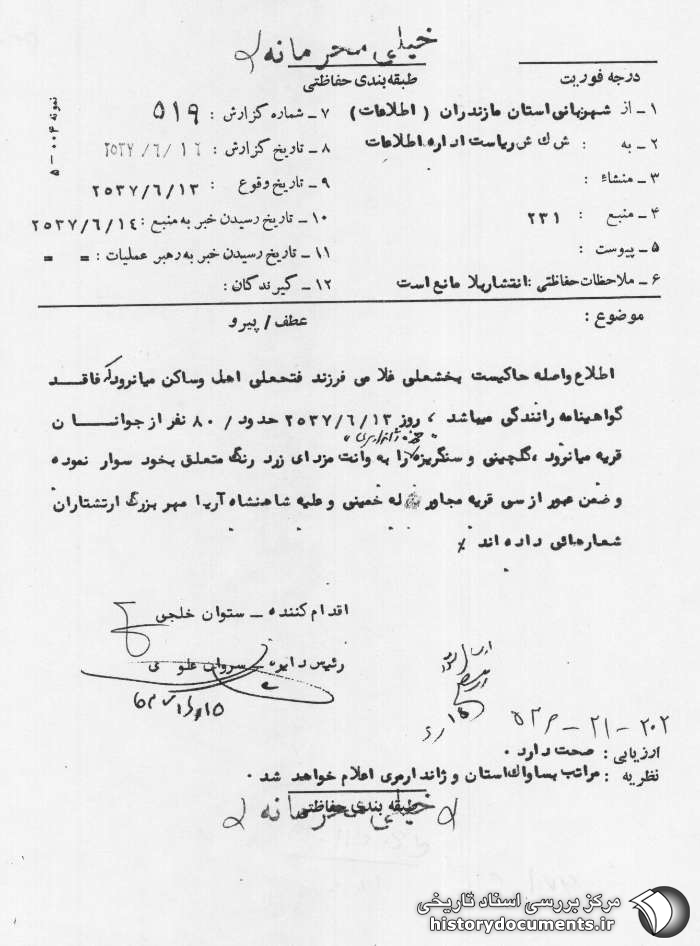 خیلی محرمانه
طبقه‌بندی حفاظتی
درجه فوریت
نمونه ۰۰۴ - ۵
۱ـ از شهربانی استان مازندران ( اطلاعات )
۲ـ به : ش ک ش ریاست اداره اطلاعات
۳ـ منشاء :
۴ـ منبع : ۲۳۱
۵ـ پیوست :
۶ـ ملاحظات حفاظتی : انتشار بلا مانع است
۷ـ شماره گزارش : ۵۱۹
۸ـ تاریخ گزارش : ۲۵۳۷/۶/۱۶
۹ـ تاریخ وقوع : ۲۵۳۷/۶/۱۳
۱۰ـ تاریخ رسیدن خبر به منبع : ۲۵۳۷/۶/۱۴
۱۱ـ تاریخ رسیدن خبر به رهبر عملیات : = =
۱۲ـ گیرندگان :
موضوع :
عطف / پیرو
اطلاع واصله حاکیست بخشعلی غلامی فرزند فتحعلی اهل وساکن میانرود که فاقد
گواهینامه رانندگی میباشد ، روز ۲۵۳۷/۶/۱۳ حدود / ۸۰ نفر از جوانان
قریه میانرود ، گلچینی و سنگریزه را به وانت مزدای زرد رنگ متعلق بخود سوار نموده
و ضمن عبور از سی قریه مجاور له خمینی و علیه شاهنشاه آریا مهر بزرگ ارتشتاران
شعارهائی داده اند
اقدام کننده ـ ستوان خلجی
رئیس دایره ـ سروان علوی
۲۰۲ - ۲۱ -
ارزیابی : صحت دارد .
نظریه : مراتب بساواک استان و ژاندارمری اعلام خواهد شد .
طبقه بندی حفاظتی
خیلی محرمانه
مرکز بررسی اسناد تاریخی
historydocuments.ir